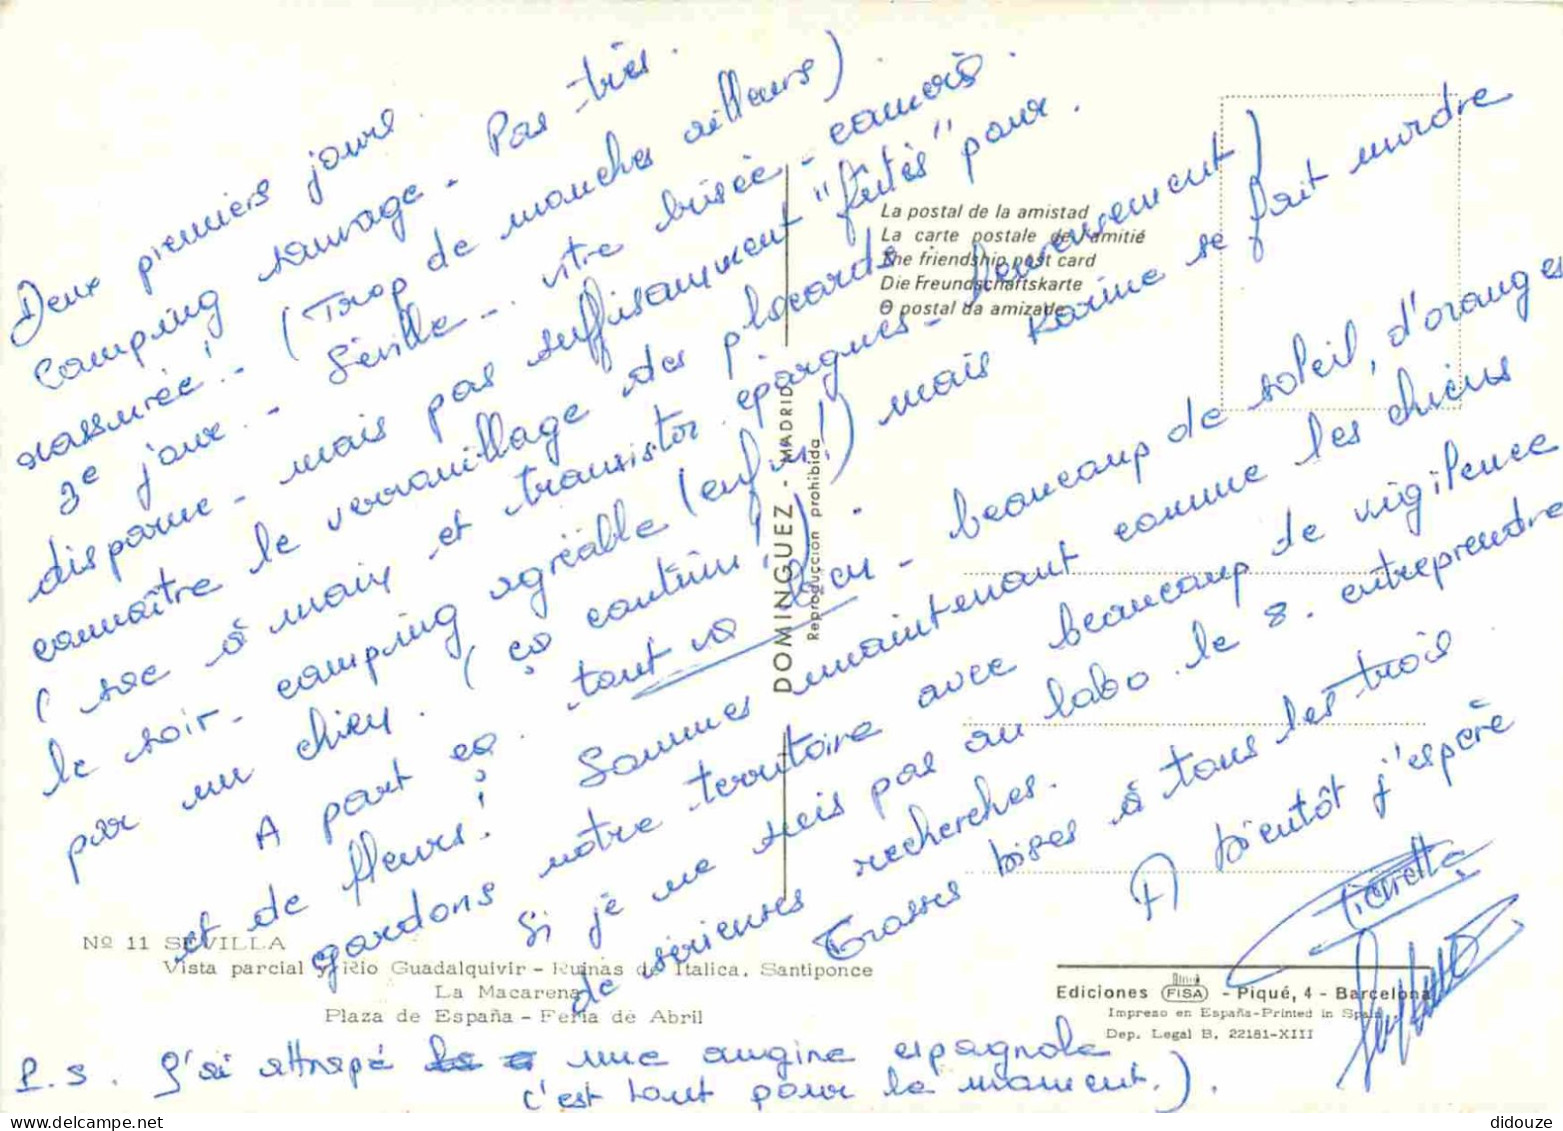 Deux premiers jours.
Camping sauvage - Pas très
rassurée! - (Trop de manches ailleurs).
3e jour. - Séville - vitre brisée - caméra
disparue - mais pas suffisamment "futés" pour
connaître le verrouillage des placards.
(sac à main et transistor épargnés - heureusement)
le soir - camping agréable (enfin!) mais Karine se fait mordre
par un chien. (ça continue!).
A part ça. tout va bien - beaucoup de soleil, d'oranges
et de fleurs! Sommes maintenant comme les chiens
gardons notre territoire avec beaucoup de vigilence
Si je ne suis pas au labo. le 8. entreprendre
de sérieuses recherches.
Grosses bises à tous les trois
A bientôt j'espère
P.S. J'ai attrapé une angine espagnole
c'est tout pour le moment.).
La postal de la amistad
La carte postale de l'amitié
The friendship post card
Die Freundschaftskarte
O postal da amizade
DOMINGUEZ - MADRID
Reproducción prohibida
Nº 11 SEVILLA
Vista parcial y Rio Guadalquivir - Ruinas de Italica, Santiponce
La Macarena
Plaza de España - Feria de Abril
Ediciones FISA - Piqué, 4 - Barcelona
Impreso en España-Printed in Spain
Dep. Legal B. 22181-XIII
delcampe.net
didouze